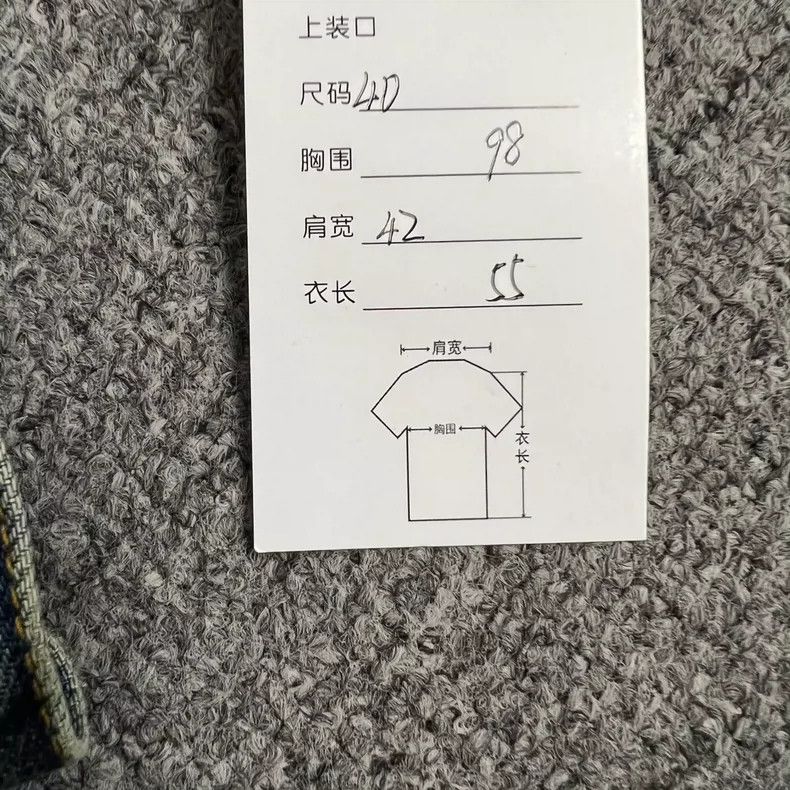 上装口
尺码40
胸围 98
肩宽 42
衣长 55
肩宽
胸围
衣长